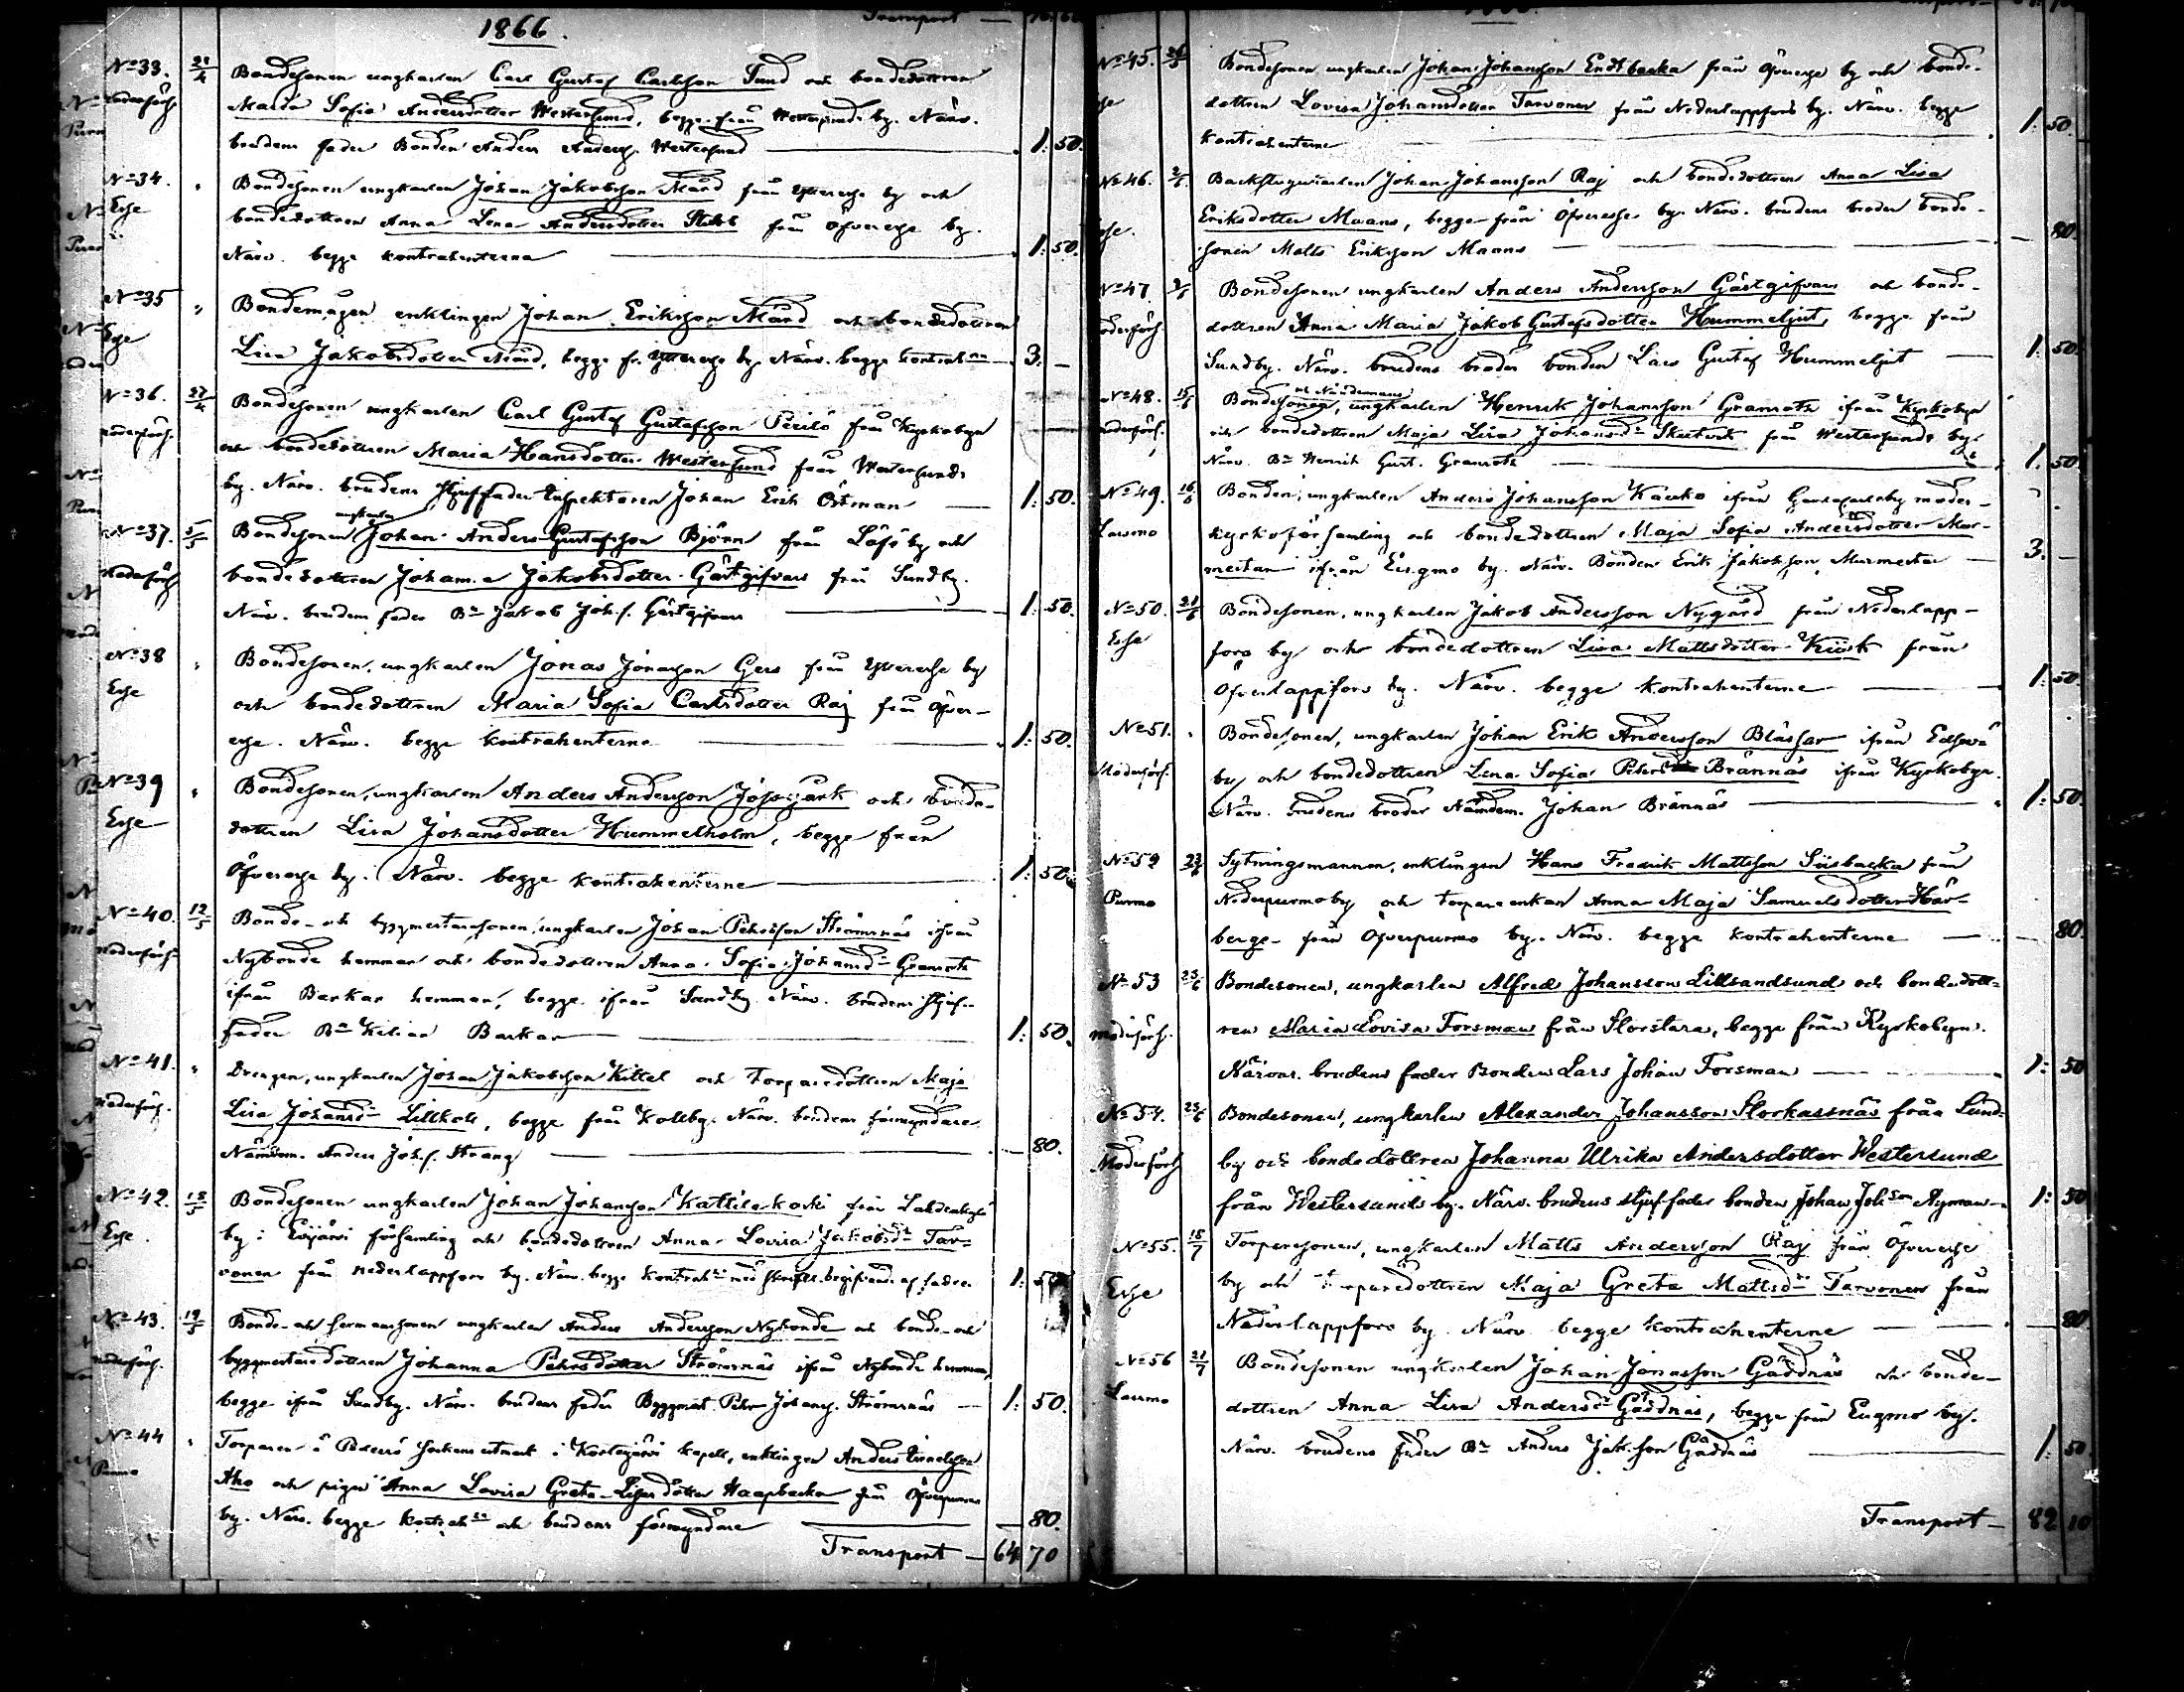 1866.
Transport —
No 33. 21/4 Bondesonen ungkarlen Carl Gustaf Carlsson Sund och bondedottren
Moderförs. Maria Sofia Andersdotter Westersund, begge från Westersunds by. Närv.
brudens fader Bonden Anders Anderss. Westersund — 1: 50.
No 34. " Bondesonen ungkarlen Johan Jakobsson Mård från Ytteresse by och
Esse bondedottren Anna Lena Andersdotter från Öfveresse by.
Närv. begge kontrahenterna — 1: 50.
No 35 " Bondemågen enklingen Johan Eriksson Mård och bondedottren
Esse Lisa Jakobsdotter Mård, begge fr. Ytteresse by. Närv. begge kontrah:ne — 3. —
No 36. 22/4 Bondesonen ungkarlen Carl Gustaf Gustafsson Perilö från Kyrkobyn
Moderförs. och bondedottren Maria Hansdotter Westersund från Westersunds
by. Närv. brudens styffader Inspektoren Johan Erik Östman — 1: 50.
No 37. 5/5 Bondesonen ungkarlen Johan Anders Gustafsson Björn från Löfö by och
Moderförs. bondedottren Johanna Jakobsdotter Gästgifvars från Sundby.
Närv. brudens fader Bn Jakob Joh.s. Gästgifvars — 1: 50.
No 38 " Bondesonen, ungkarlen Jonas Jonasson Gers från Ytteresse by
Esse och bondedottren Maria Sofia Carlsdotter Raj från Öfver-
esse. Närv. begge kontrahenterne — 1: 50.
No 39 " Bondesonen, ungkarlen Anders Andersson och bonde-
Esse dottren Lisa Johansdotter Hummelholm, begge från
Öfveresse by. Närv. begge kontrahenterne — 1: 50.
No 40. 12/5 Bonde- och byggmästaresonen, ungkarlen Johan Pehrsson Strömsnäs ifrån
Moderförs. Nybonde hemman och bondedottren Anna Sofia Johansdr Granroth
ifrån Barkar hemman, begge ifrån Sundby. Närv. brudens styf-
fader Bn Kilian Barkar — 1: 50.
No 41. " Drengen, ungkarlen Johan Jakobsson Kittel och torparedottren Maja
Moderförs. Lisa Johansdr Lillkåll, begge från Kållby. Närv. brudens förmyndare
Nämdem. Anders Joh.s. Strang — 80.
No 42. 18/5 Bondesonen ungkarlen Johan Johansson Kattilakoski från
Esse by i Evijärvi församling och bondedottren Anna Lovisa Jakobsdr Tar-
vonen från Nederlappfors by. Närv. begge kontrah:ne med skriftl. begifvande af fadren. 1: 50
No 43. 19/5 Bonde- och ungkarlen Anders Andersson Nybonde och bonde- och
Moderförs. byggmästaredottren Johanna Pehrsdotter Strömsnäs ifrån Nybonde hemman,
begge ifrån Sundby. Närv. brudens fader Byggmäst. Pehr Johanss. Strömsnäs — 1: 50.
No 44 " Torparen å i Kortesjärvi kapell, enklingen Anders
Purmo Aho och pigan Anna Lovisa Greta-Lisasdotter Haapbacka från Öfverpurmo
by. Närv. begge kontrah:ne och brudens förmyndare — 80.
Transport — 64 70
No 45. Bondesonen, ungkarlen Johan Johansson Endtbacka från Öfveresse by och bonde-
Esse dottren Lovisa Johansdotter Tarvonen från Nederlappfors by. Närv. begge
kontrahenterne — 1: 50.
No 46. Backstuguvarlen Johan Johansson Raj och bondedottren Anna Lisa
Esse. Eriksdotter Maans, begge från Öfveresse by. Närv. brudens broder bonde-
sonen Matts Eriksson Maans — 80.
No 47 Bondesonen ungkarlen Anders Andersson Gästgifvars och bonde-
Moderförs. dottren Anna Maria Jakob Gustafsdotter Hummeljut, begge från
Sundby. Närv. brudens broder bonden Lars Gustaf Hummeljut — 1: 50
No 48. 15/6 Bondesonen, ungkarlen Henrik Johansson Granroth ifrån Kyrkobyn
Moderförs. och bondedottren Maja Lisa Johansdr från Westersunds by.
Närv. Bn Henrik Gust. Granroth — 1. 50
No 49. 16/6 Bonden, ungkarlen Anders Johansson Käcko ifrån moder-
Larsmo kyrkoförsamling och bondedottren Maja Sofia Andersdotter Mur-
mestar ifrån Eugmo by. Närv. Bonden Erik Jakobsson Murmestar — 3. —
No 50. 21/6 Bondesonen, ungkarlen Jakob Andersson Nygård från Nederlapp-
Esse fors by och bondedottren Lisa Mattsdotter Kiisk från
Öfverlappfors by. Närv. begge kontrahenterne — 1: 50.
No 51. " Bondesonen, ungkarlen Johan Erik Andersson Bläsjar ifrån Edsevö
Moderförs. by och bondedottren Lena Sofia Pehrsd Brännäs ifrån Kyrkobyn.
Närv. brudens broder Nämdem. Johan Brännäs — 1: 50
No 52 23/6 Sytningsmannen, enklingen Hans Fredrik Mattsson Sisbacka från
Purmo Nederpurmo by och torpareenkan Anna Maja Samuelsdotter Här-
berge från Öfverpurmo by. Närv. begge kontrahenterne — 80.
No 53 23/6 Bondesonen, ungkarlen Alfred Johansson Lillsandsund och bondedott-
Moderförs. ren Maria Lovisa Forsman från Storstara, begge från Kyrkobyn.
Närvar. brudens fader Bonden Lars Johan Forsman — 1: 50
No 54. 23/6 Bondesonen, ungkarlen Alexander Johansson Storkassnäs från Sund-
Moderförs by och bondedottren Johanna Ulrika Andersdotter Westersund
från Westersunds by. Närv. brudens stjuf-fader bonden Johan Johson Nyman — 1: 50
No 55. 15/7 Torparesonen, ungkarlen Matts Andersson Raj från Öfveresse
Esse by och torparedottren Maja Greta Mattsdr Tarvonen från
Nederlappfors by. Närv. begge kontrahenterne — 80.
No 56 21/7 Bondesonen ungkarlen Johan Jonasson Gäddnäs och bonde-
Larsmo dottren Anna Lisa Andersdr Gäddnäs, begge från Eugmo by.
Närv. brudens fader Bn Anders Jak.son Gäddnäs — 1: 50
Transport — 82 10